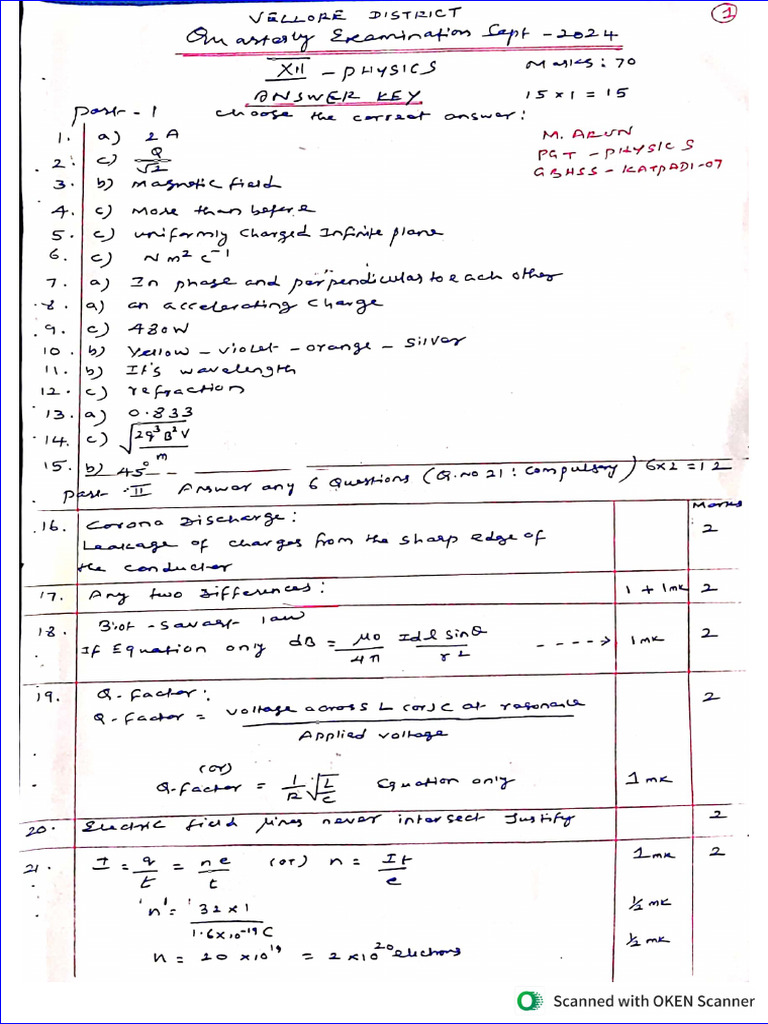 VELLORE DISTRICT
1
Quarterly Examination Sept - 2024
XII - PHYSICS
Marks: 70
ANSWER KEY
15 x 1 = 15
Part - I choose the correct answer:
M. ARUN
PGT - PHYSICS
GBHSS - KATPADI-07
1. a) 2 A
2. c) Q/√2
3. b) magnetic field
4. c) More than before
5. c) uniformly charged Infinite plane
6. c) N m² C⁻¹
7. a) In phase and perpendicular to each other
8. a) an accelerating charge
9. c) 480W
10. b) Yellow - violet - orange - silver
11. b) It's wavelength
12. c) refraction
13. a) 0.833
14. c) √(2q³B²V/m)
15. b) 45°
Part - II Answer any 6 Questions (Q.No 21: Compulsory) 6x2 = 12
Marks
16. Corona Discharge: 2
Leakage of charges from the sharp edge of
the conductor
17. Any two Differences: 1 + 1mk 2
18. Biot - Savart - law
If Equation only dB = μ0/4π Idl sinθ/r² ----> 1mk 2
19. Q-factor: 2
Q-factor = voltage across L (or) C at resonance / Applied voltage
(or)
Q-factor = 1/R √L/C Equation only 1 mk
20. Electric field lines never intersect Justify 2
21. I = q/t = ne/t (or) n = It/e 1mk 2
'n' = 32 x 1 / 1.6x10⁻¹⁹ C ½ mk
n = 20 x 10¹⁹ = 2 x 10²⁰ electrons ½ mk
Scanned with OKEN Scanner